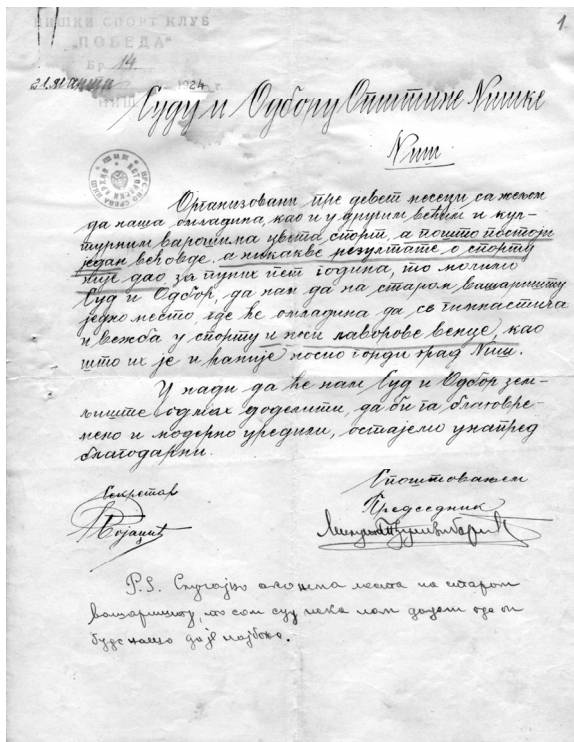 НИШКИ СПОРТ КЛУБ
"ПОБЕДА"
Бр. 14.
21. марта 1924 г.
НИШ
1.
Суду и Одбору Општине Нишке
Ниш
Организовани пре девет месеци са жељом
да наша омладина, као и у другим већим и кул-
турним варошима цвета спорт, а пошто постоји
један већ овде, а никакве резултате о спорту
није дао за пуних пет година, то молимо
Суд и Одбор, да нам да на старом вашаришту
једно место, где ће омладина да се гимнастича
и вежба у спорту и носи лаворове венце, као
што их је и раније носио горди град Ниш.
У нади да ће нам Суд и Одбор зем-
љиште одмах доделити, да би га благовре-
мено и модерно уредили, остајемо унапред
благодарни.
Секретар
С поштовањем
Председник
P.S. Случајно ако нема места на старом
вашаришту, то сам суд нека нам додели где он
буде нашао да је најбоље.